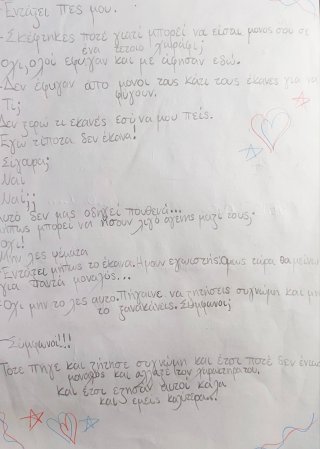 -Εντάξει πες μου.
-Σκέφτηκες ποτέ γιατί μπορεί να είσαι μόνος σου σε
ένα τέτοιο χωράφι;
Όχι, όλοι έφυγαν και με άφησαν εδώ.
-Δεν έφυγαν από μόνοι τους κάτι τους έκανες για να
φύγουν.
Τι;
Δεν ξέρω τι έκανες εσύ να μου πεις.
Εγώ τίποτα δεν έκανα!
Σίγουρα;
Ναι
Ναι;;
Αυτό δεν μας οδηγεί πουθενά...
μήπως μπορεί να ήσουν λίγο αγενής μαζί τους;
Όχι!
Μην λες ψέματα
-Εντάξει μήπως το έκανα. Ήμουν εγωιστής! Όμως τώρα θα μείνω
για πάντα μοναχός...
-Όχι μην το λες αυτό. Πήγαινε να ζητήσεις συγνώμη και μην
το ξανακάνεις. Σύμφωνοι;
-Σύμφωνοι!!!
Τότε πήγε και ζήτησε συγνώμη και έτσι ποτέ δεν ένιωσε
μοναχός και άλλαξε τον χαρακτήρα του.
και έτσι έζησαν αυτοί καλά
και εμείς καλύτερα!